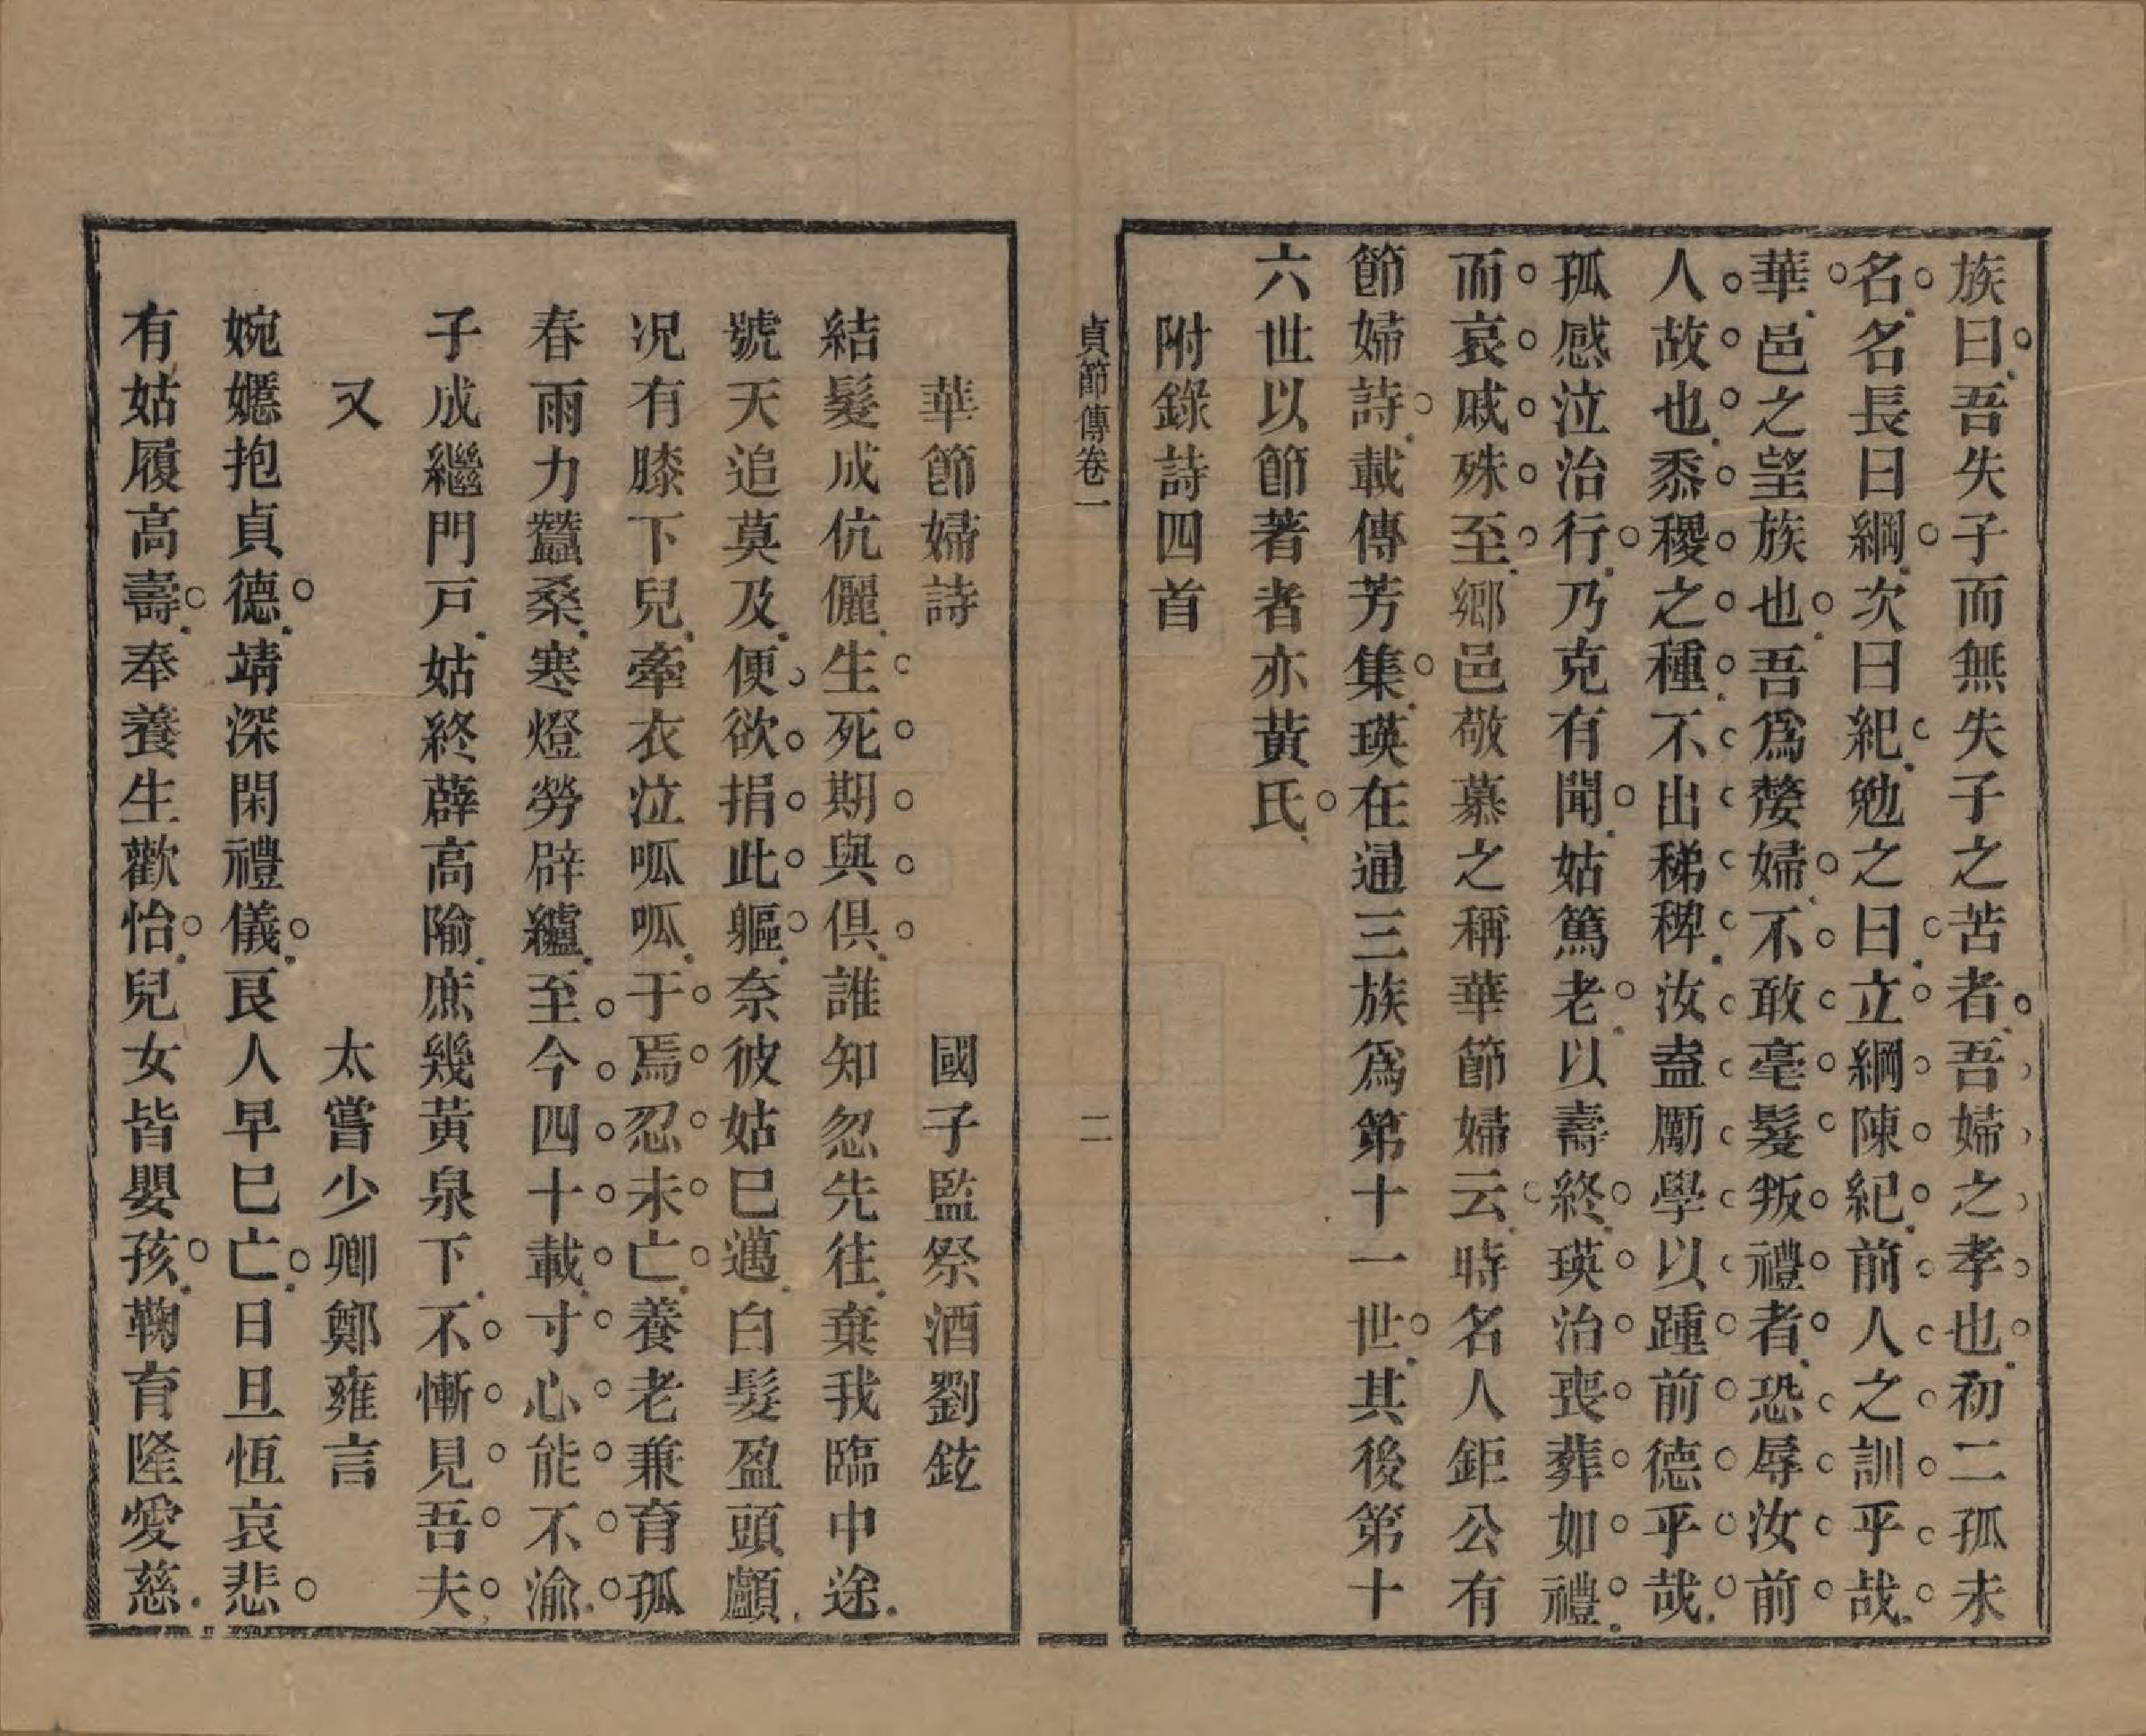 族曰吾失子而無失子之苦者吾婦之孝也初二孤未
名名長曰綱次曰紀勉之曰立綱陳紀前人之訓乎哉
華邑之望族也吾爲嫠婦不敢毫髮叛禮者恐辱汝前
人故也黍稷之種不出稊稗汝盍勵學以踵前德乎哉
孤感泣治行乃克有聞姑篤老以壽終瑛治喪葬如禮
而哀戚殊至鄉邑敬慕之稱華節婦云時名人鉅公有
節婦詩載傳芳集瑛在通三族爲第十一世其後第十
六世以節著者亦黃氏
附錄詩四首
貞節傳卷一
二
華節婦詩 國子監祭酒劉鉉
結髮成伉儷生死期與俱誰知忽先往棄我臨中途
號天追莫及便欲捐此軀奈彼姑巳邁白髮盈頭顱
况有膝下兒牽衣泣呱呱于焉忍未亡養老兼育孤
春雨力蠶桑寒燈勞辟纑至今四十載寸心能不渝
子成繼門戸姑終薜高隃庶幾黃泉下不慚見吾夫
又 太嘗少卿鄭雍言
婉嬺抱貞德靖深閑禮儀良人早巳亡日旦恆哀悲
有姑履高壽奉養生歡怡兒女皆嬰孩鞠育隆愛慈